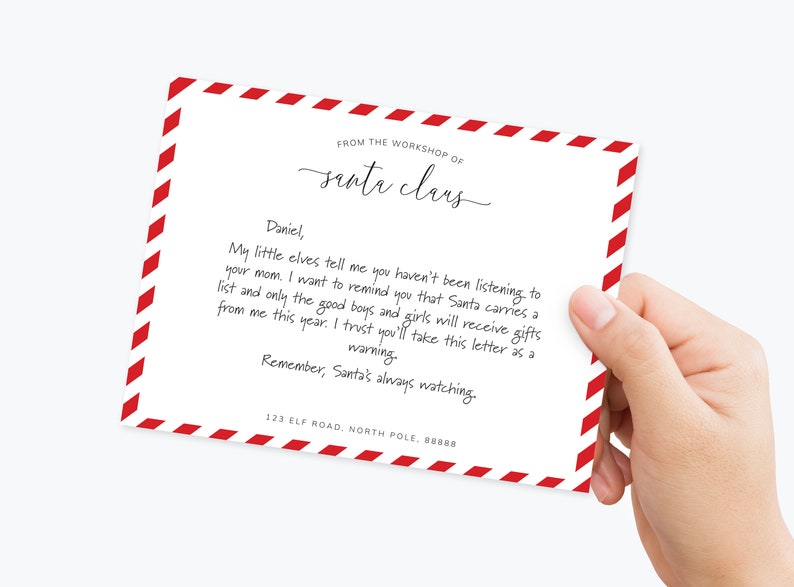 FROM THE WORKSHOP OF
santa claus
Daniel,
My little elves tell me you haven't been listening to
your mom. I want to remind you that Santa carries a
list and only the good boys and girls will receive gifts
from me this year. I trust you'll take this letter as a
warning.
Remember, Santa's always watching.
123 ELF ROAD, NORTH POLE, 88888